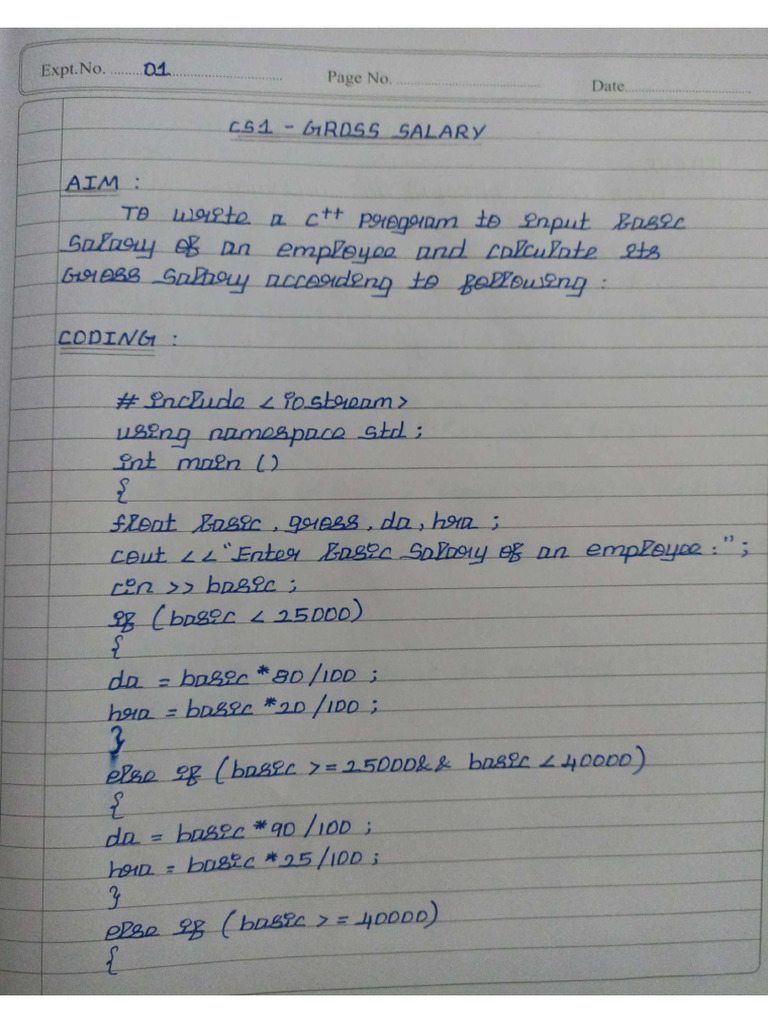 Expt.No. 01
Page No.
Date
CS1 - GROSS SALARY
AIM :
To write a c++ program to input basic
salary of an employee and calculate its
Gross salary according to following :
CODING :
# include < iostream>
using namespace std ;
int main ()
{
float basic, gross, da, hra ;
cout << "Enter basic salary of an employee : " ;
cin >> basic ;
if (basic < 25000)
{
da = basic * 80 /100 ;
hra = basic * 20 /100 ;
}
else if (basic >= 25000 && basic < 40000)
{
da = basic * 90 /100 ;
hra = basic * 25 /100 ;
}
else if (basic >= 40000)
{